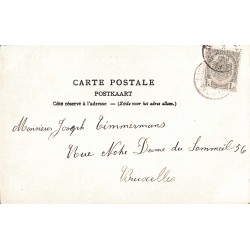 CARTE POSTALE
POSTKAART
Côté réservé à l'adresse — (Zijde voor het adres alleen.)
Monsieur Joseph Timmermans
Rue Notre Dame du Sommeil 56
Bruxelles